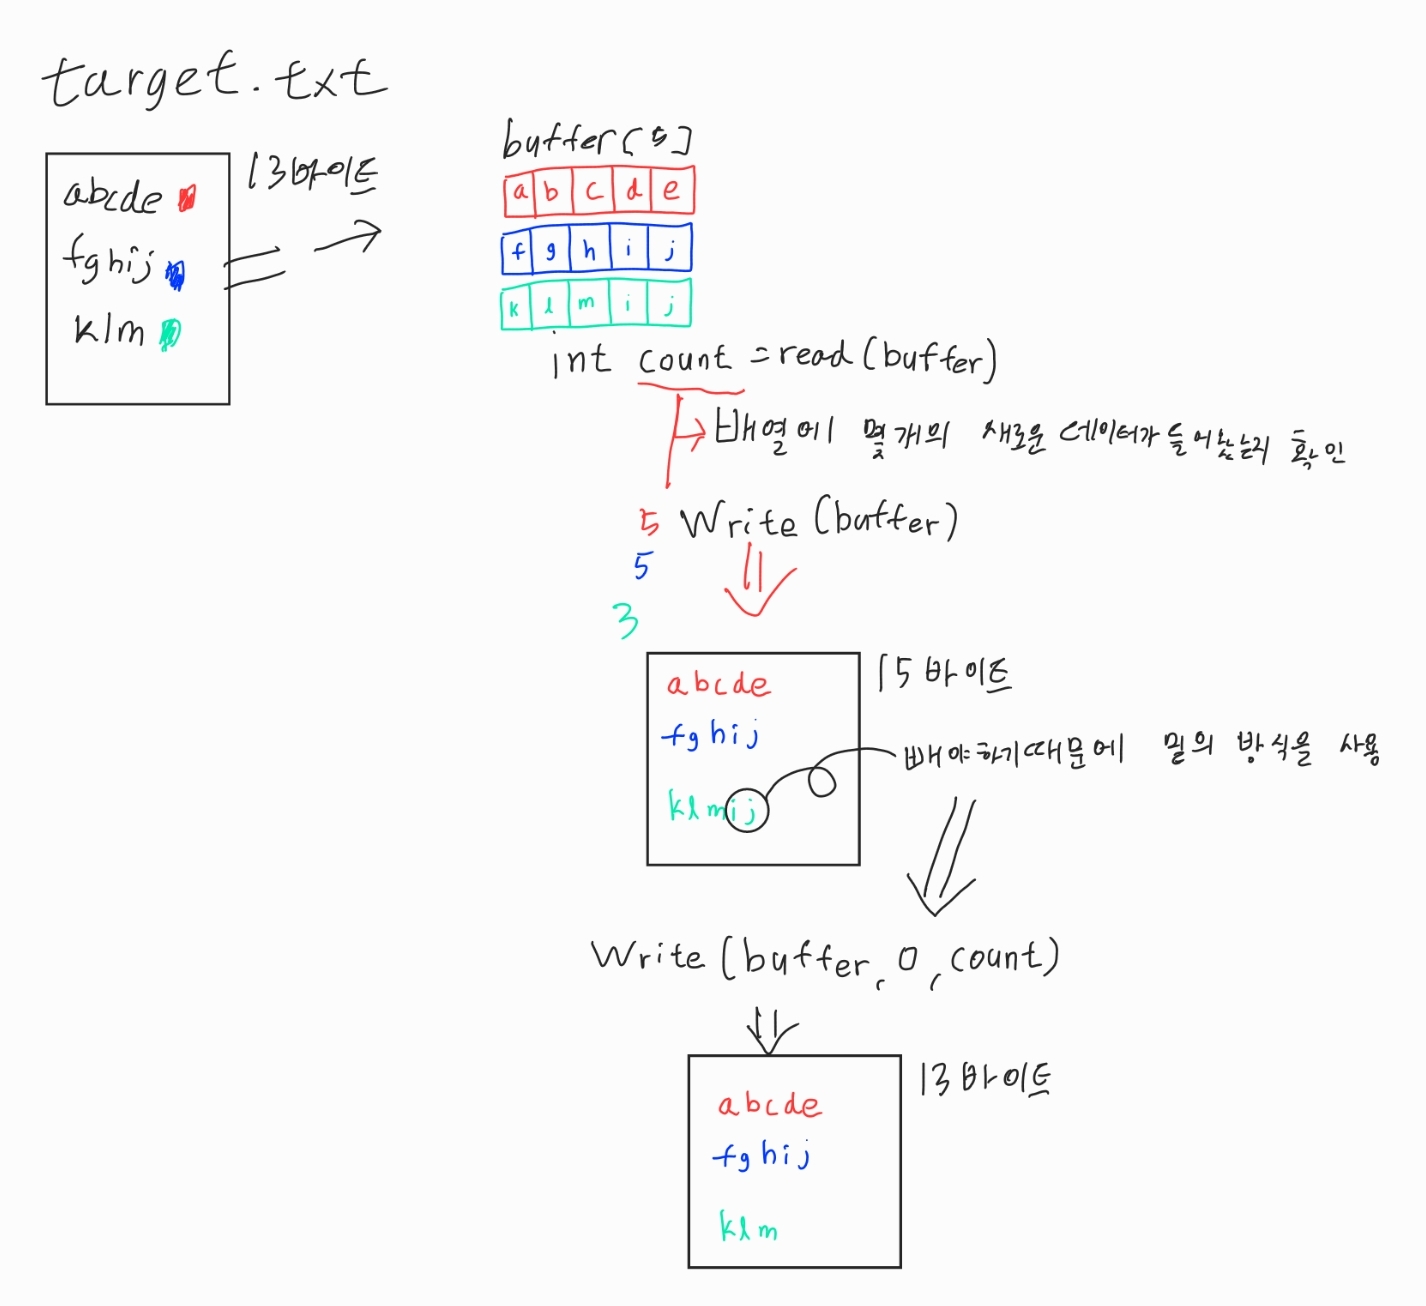 target.txt
13바이트
abcde
fghij
klm
buffer[5]
a b c d e
f g h i j
k l m i j
int count = read(buffer)
배열에 몇개의 새로운 데이터가 들어왔는지 확인
5 Write(buffer)
5
3
15바이트
abcde
fghij
klmij
빼야하기때문에 밑의 방식을 사용
Write(buffer, 0, count)
13바이트
abcde
fghij
klm